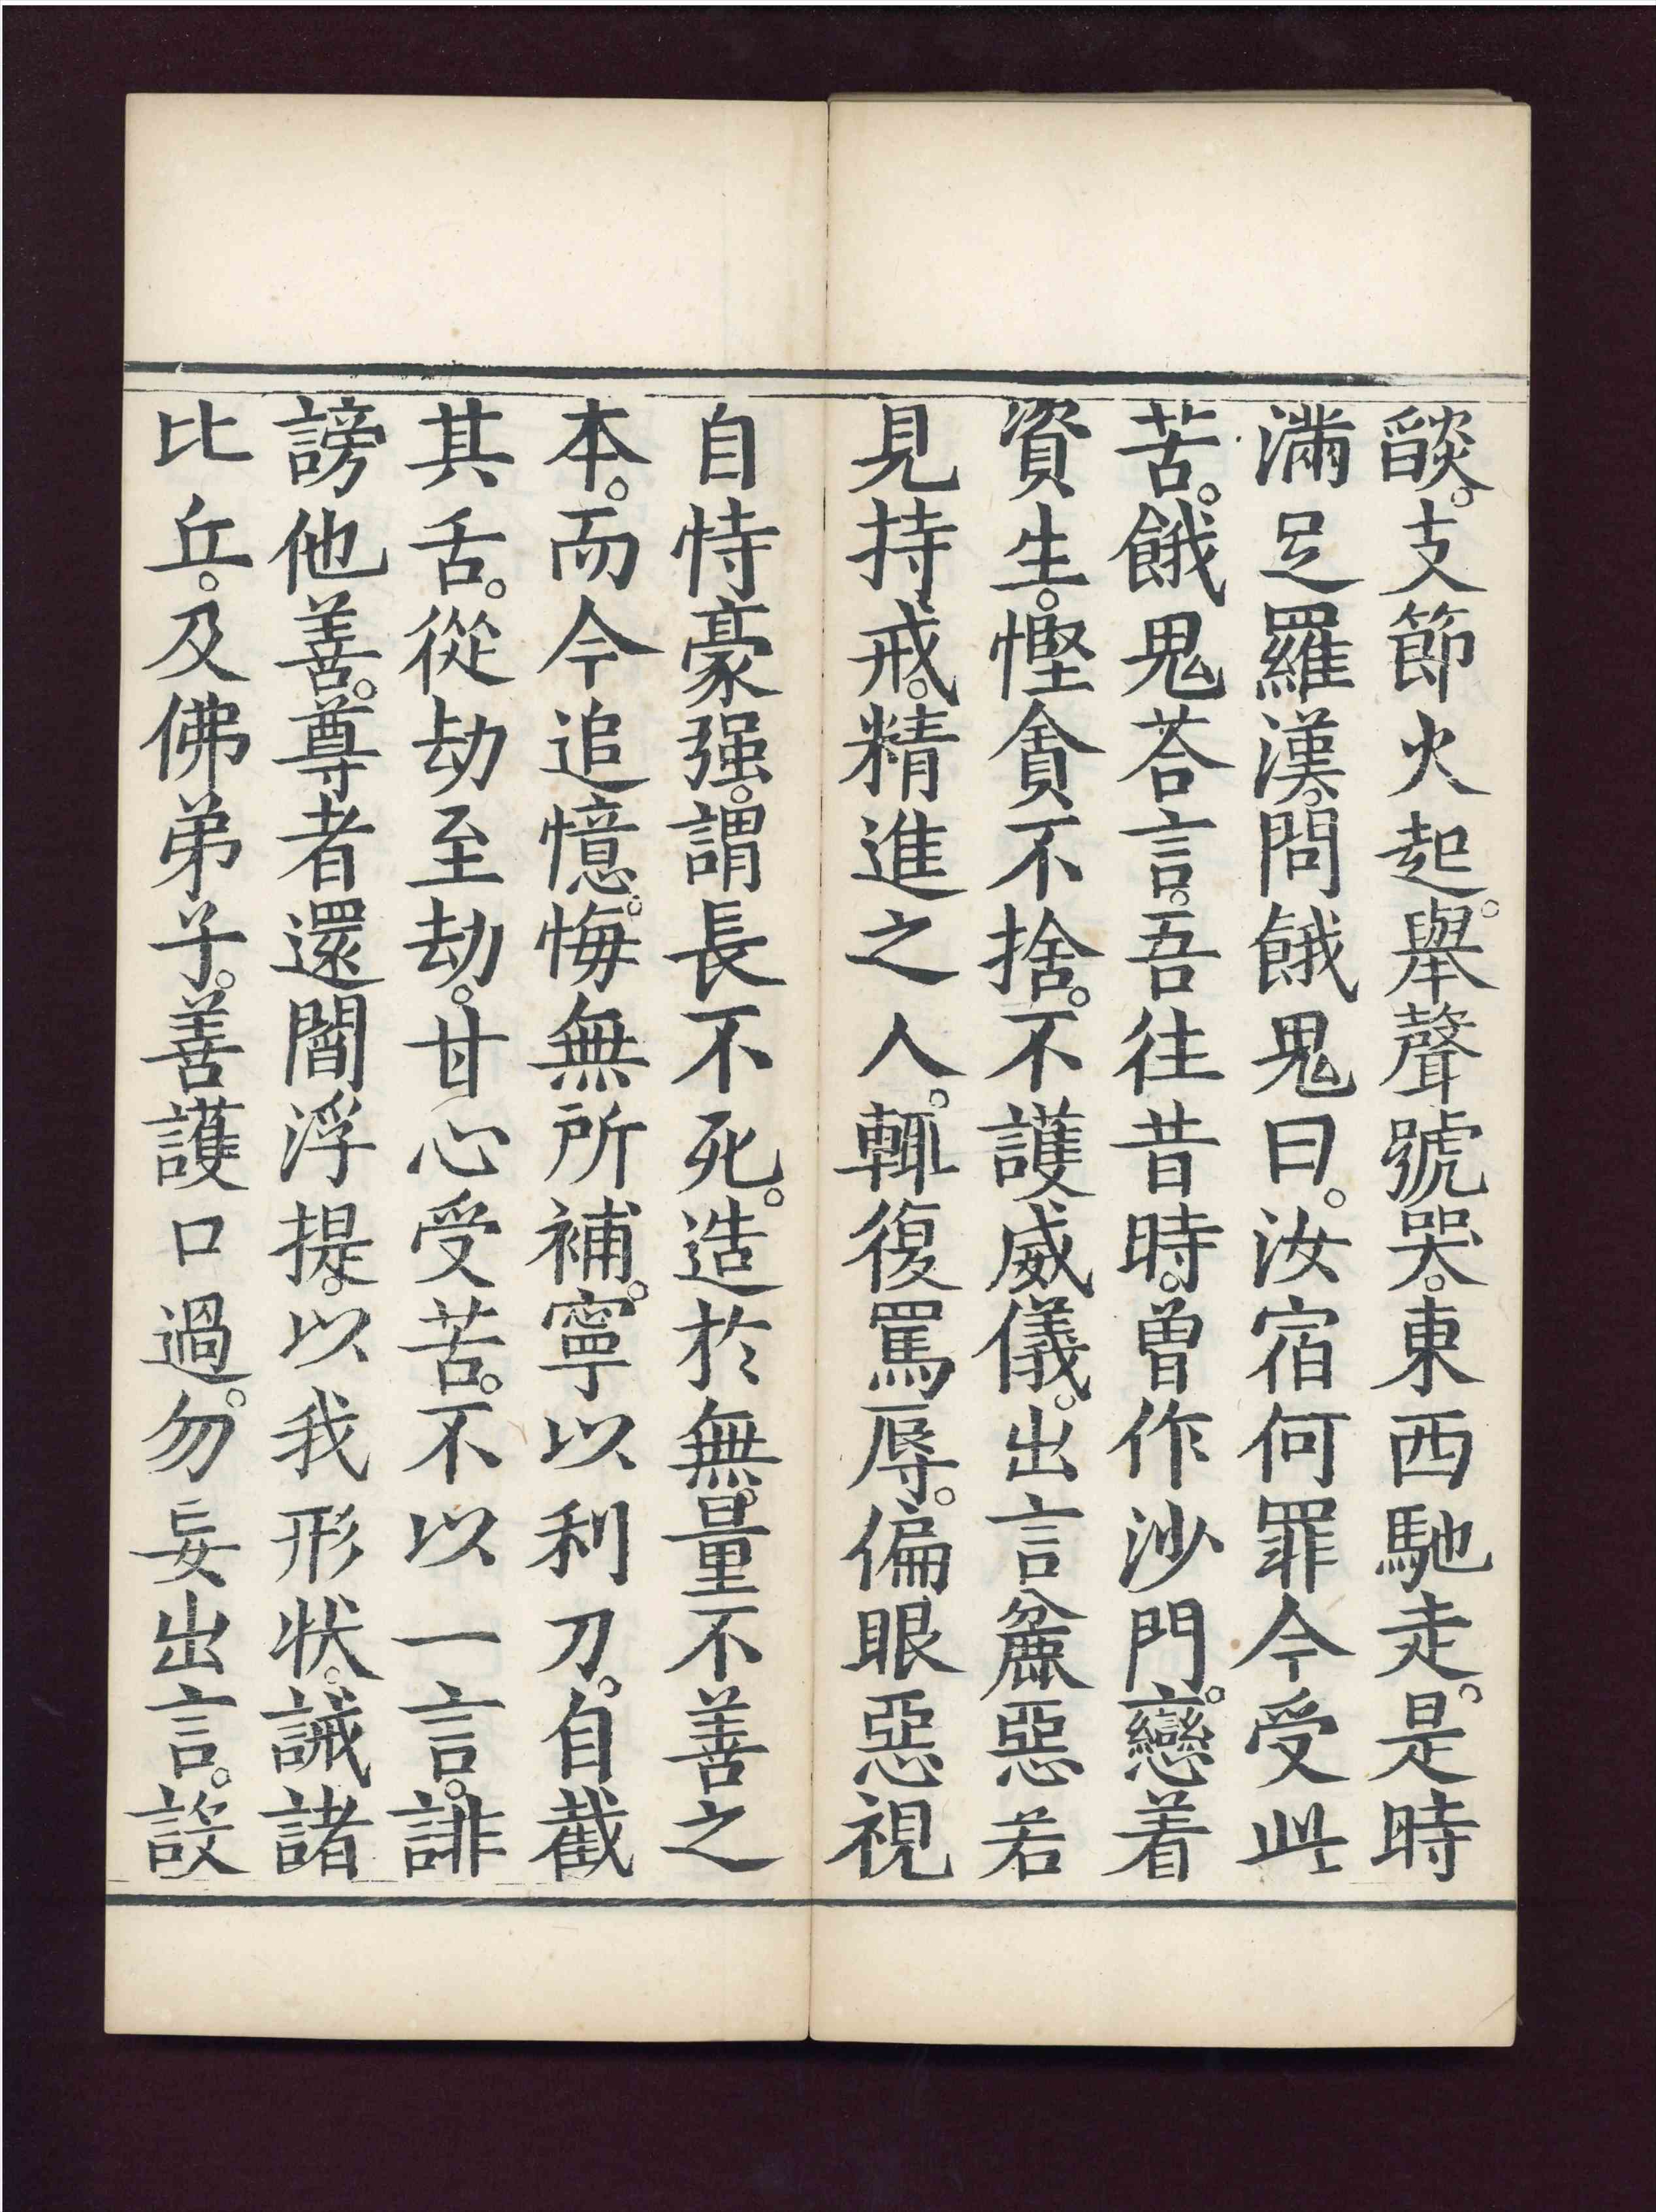 燄。支節火起。舉聲號哭。東西馳走。是時
滿足羅漢。問餓鬼曰。汝宿何罪今受此
苦。餓鬼荅言。吾往昔時。曾作沙門。戀着
資生。慳貪不捨。不護威儀。出言麁惡若
見持戒。精進之人。輒復罵辱。偏眼惡視
自恃豪强。謂長不死。造於無。量不善之
本。而今追憶。悔無所補。寧以利刀。自截
其舌。從劫至劫。甘心受苦。不以一言。誹
謗他善。尊者還閻浮提。以我形状。誡諸
比丘。及佛弟子。善護口過。勿妄出言。設